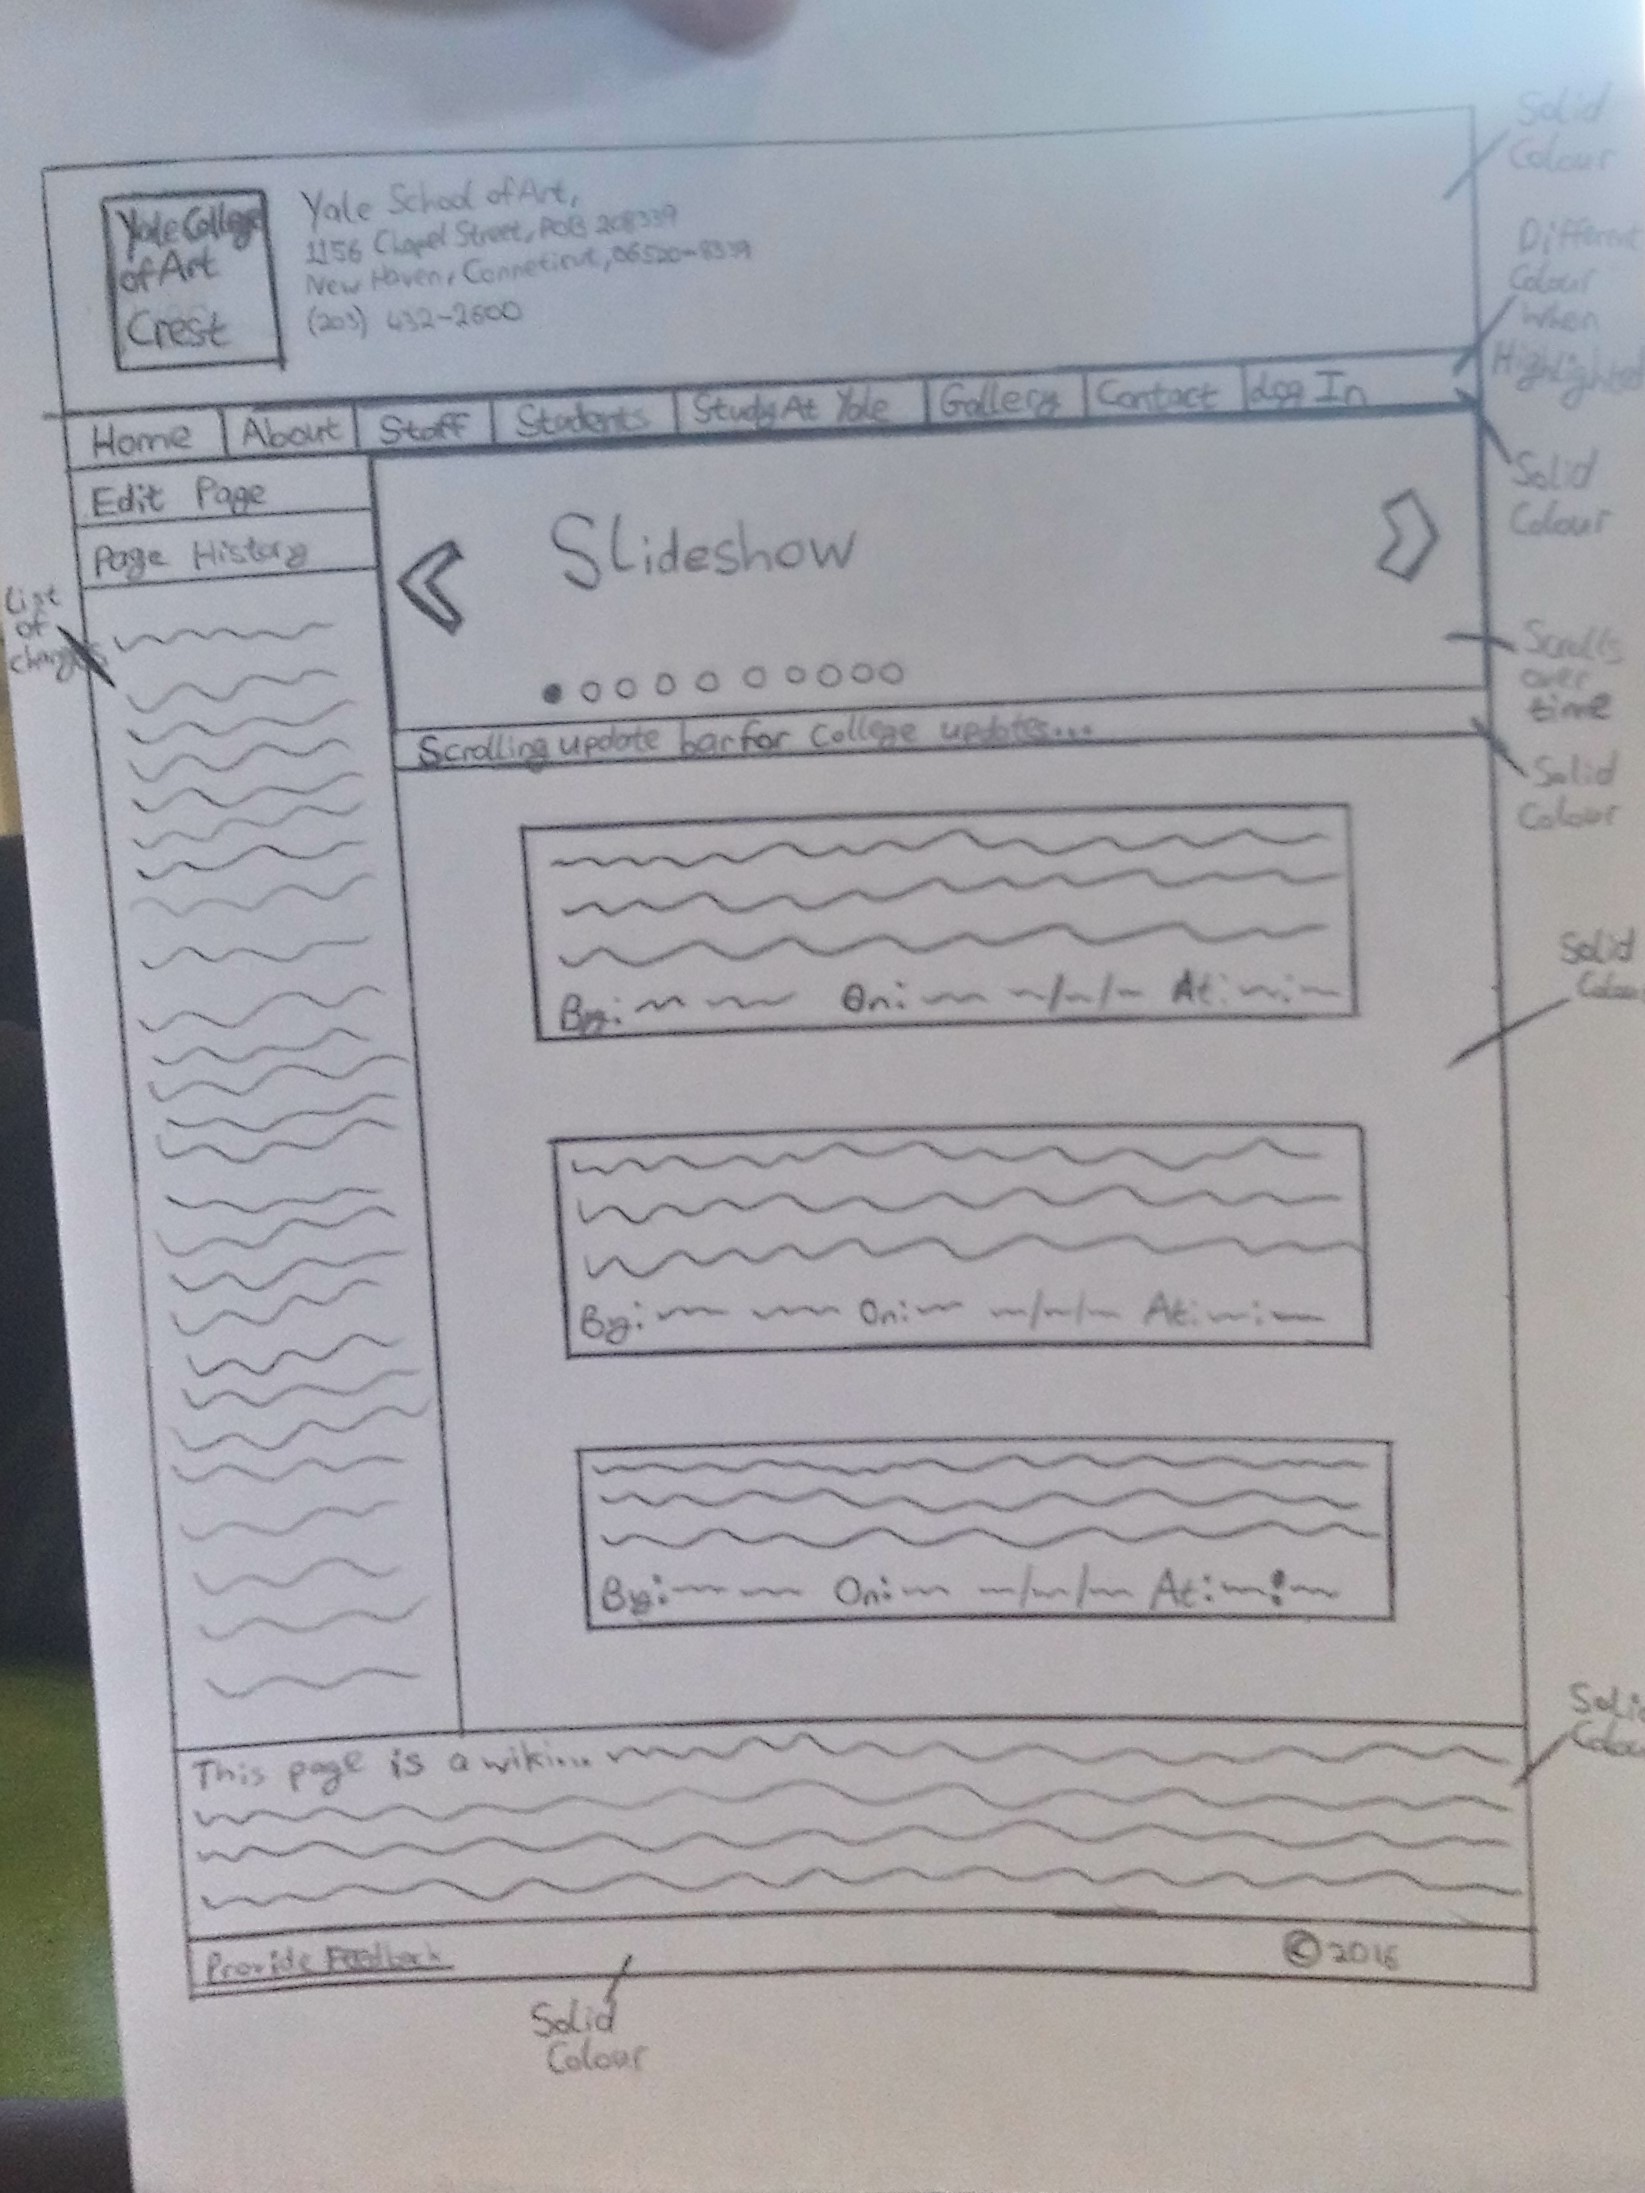 Solid
Colour
Yale College
of Art
Crest
Yale School of Art,
1156 Chapel Street, POB 208339
New Haven, Conneticut, 06520-8339
(203) 432-2600
Different
Colour
When
Highlighted
Home About Staff Students Study At Yale Gallery Contact Log In
Solid
Colour
Edit Page
Page History
List
of
changes
Slideshow
Scrolls
over
time
Scrolling update bar for College updates...
Solid
Colour
By: On: / / At: :
Solid
Colour
By: On: / / At: :
By: On: / / At: :
Solid
Colour
This page is a wiki...
Provide Feedback
© 2016
Solid
Colour